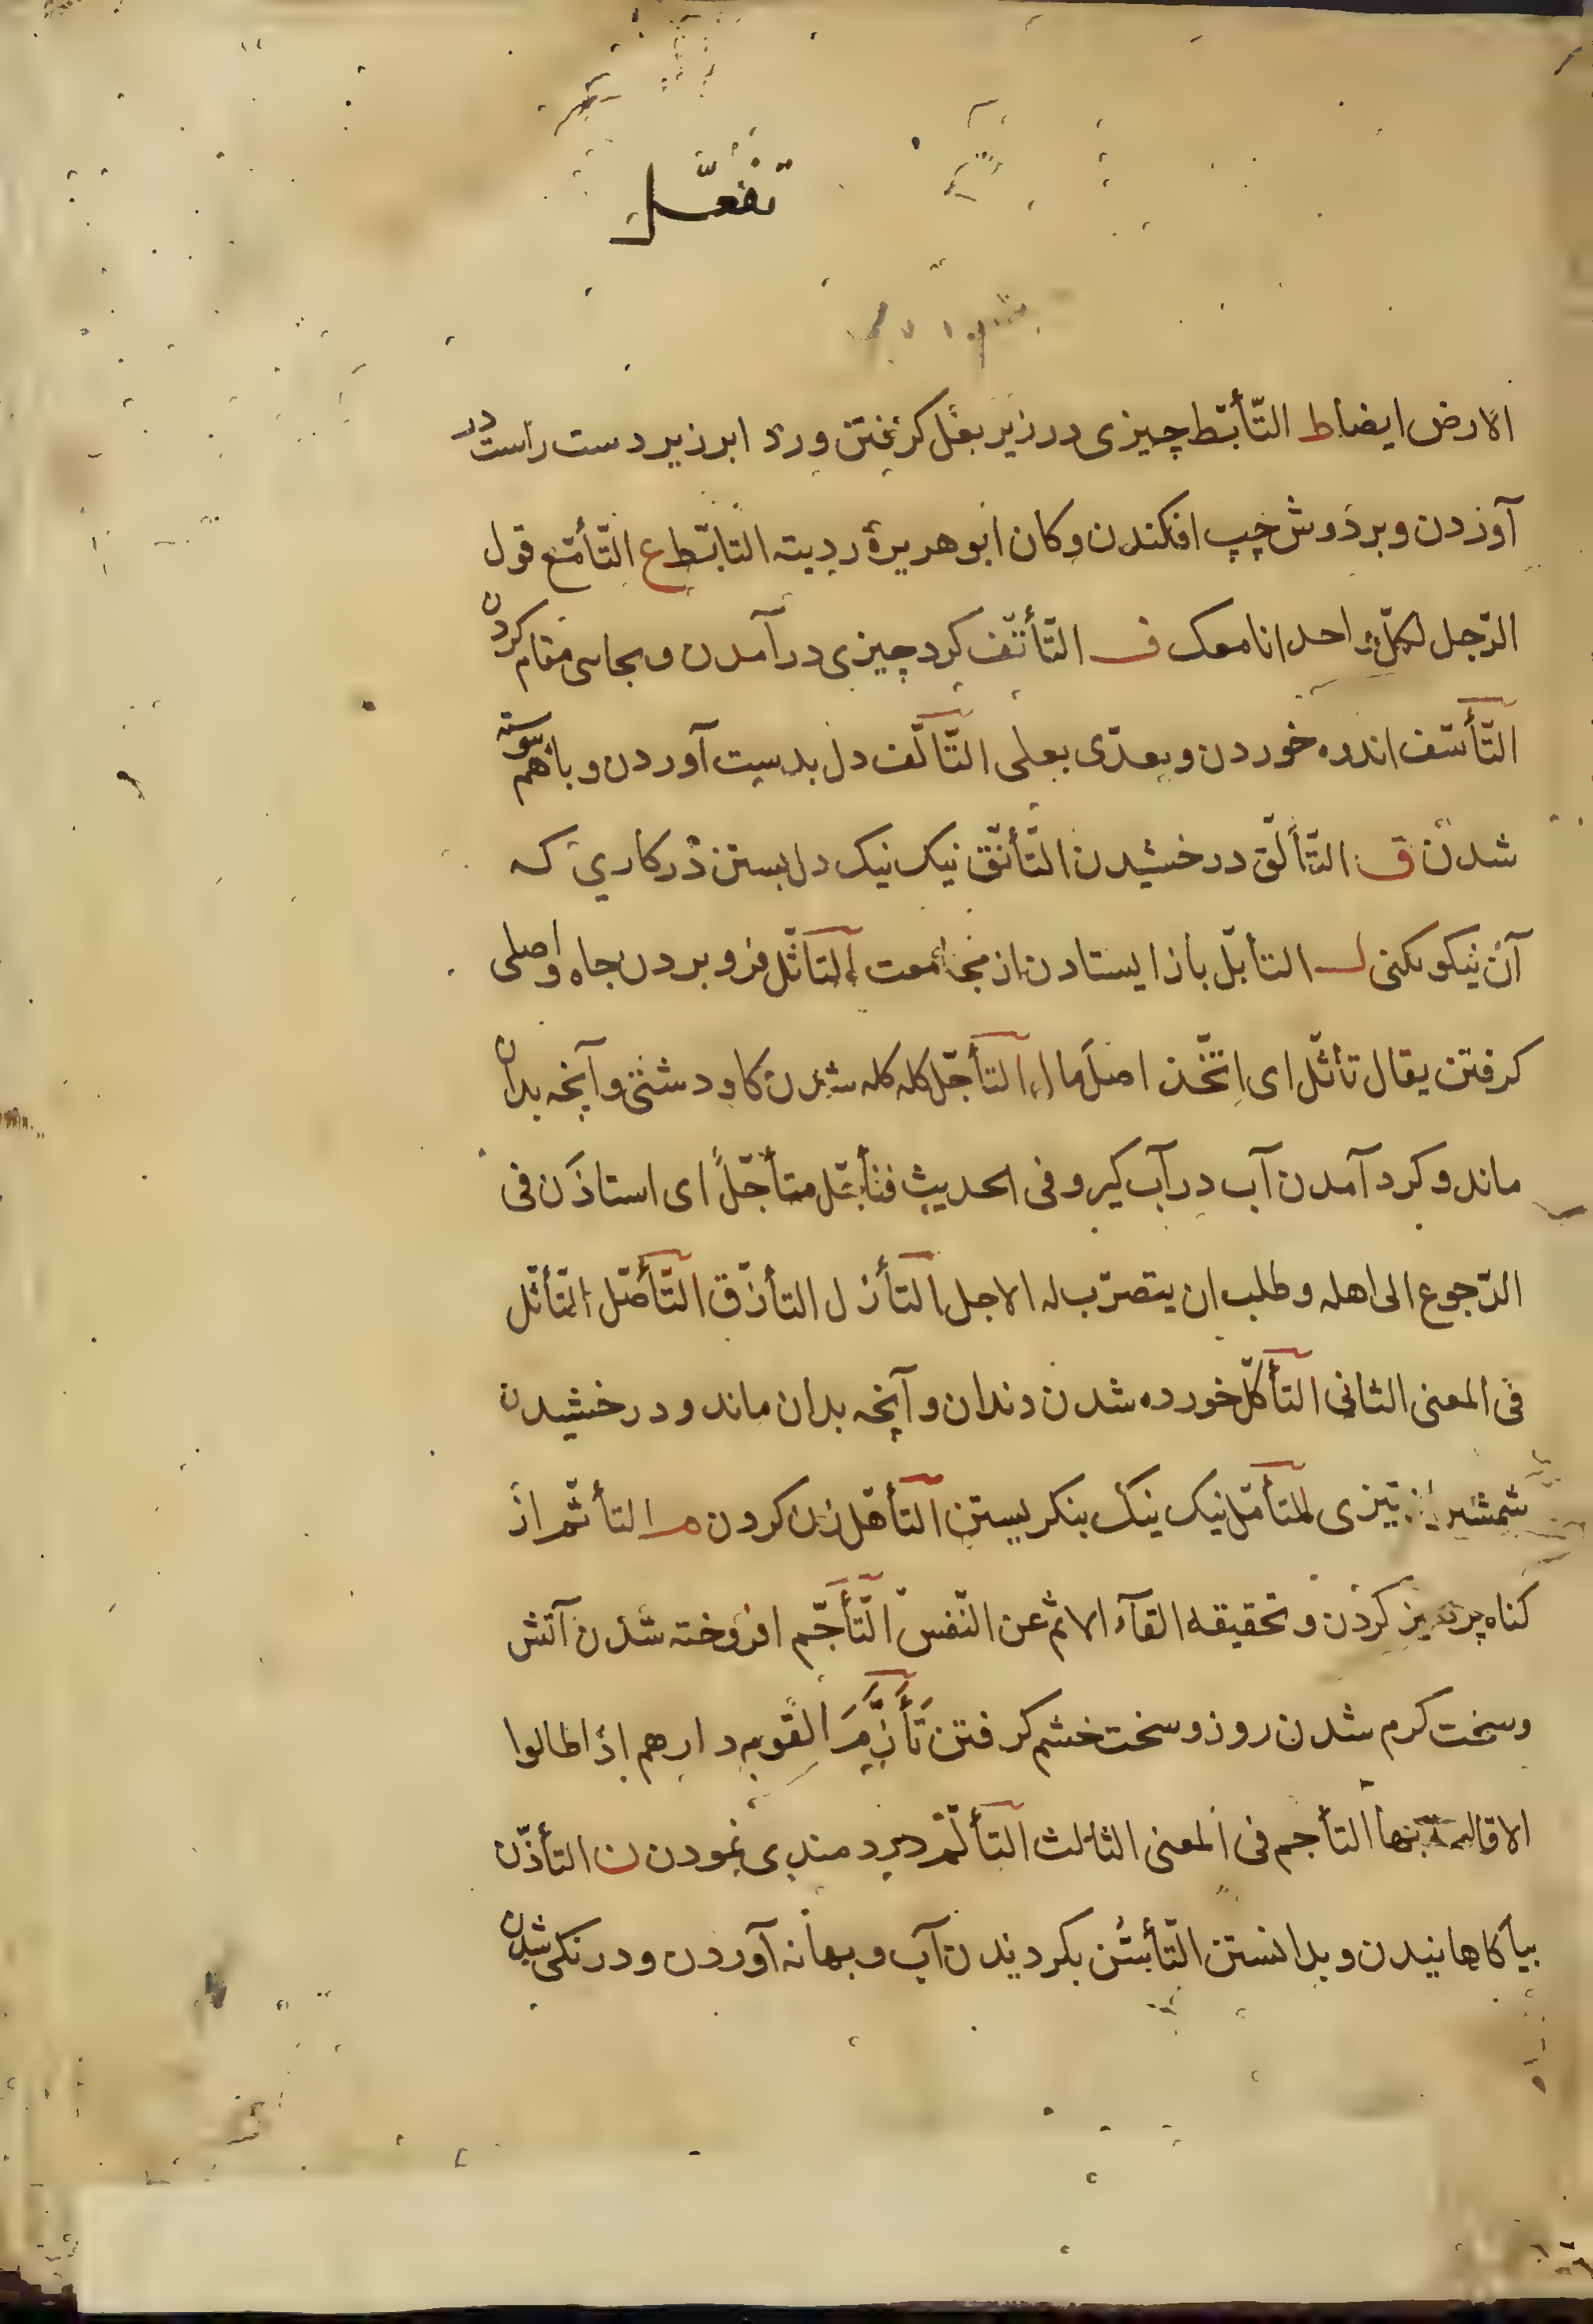 تفعّل
الارض ایضا ط التّأبّط چیزی در زیر بغل کرفتن و ردا بر زیر دست راست در
آوردن و بر دوش چپ افکندن و کان ابو هریرة ردیته التابّط ع التّأمّع قول
الرّجل لکلّ احد انا معک ف التّأثّف کرد چیزی درآمدن و بجایی مقام کردن
التّأسّف اندوه خوردن و یعدّی بعلی التّألّف دل بدست آوردن و باهم پیوسته
شدن ق التّألّق درخشیدن التّأنّق نیک نیک دل بستن در کاری که
آن نیکو بکنی ل التأبّل باز ایستادن از مجامعت التأثّل فرو بردن چاه و اصلی
کرفتن یقال تأثّل ای اتّخذ اصل مال التأجّل کله کله شدن کاو دشتی و آنچه بدان
ماند و کرد آمدن آب در آب کیر و فی الحدیث متأجّلٌ ای استاذن فی
الرّجوع الی اهله و طلب ان یتصرّب له الاجل التأزل التأزّق التّأصّل التّأثّل
فی المعنی الثانی التأکّل خورده شدن دندان و آنچه بدان ماند و درخشیدن
شمشیر از تیزی التأمّل نیک نیک بنکریستن التأهّل زن کردن م التأثّم از
کناه پرهیز کردن و تحقیقه القآء الاثم عن النّفس التّأجّم افروخته شدن آتش
و سخت کرم شدن روز و سخت خشم کرفتن تَأَزَّمَ القوم دارهم اذا اطالوا
الاقامة بها التأجم فی المعنی الثالث التألّم دردمندی نمودن ن التأذّن
بیاکاهانیدن و بدانستن التّأسُّن بکردیدن آب و بهانه آوردن و درنکی شدن